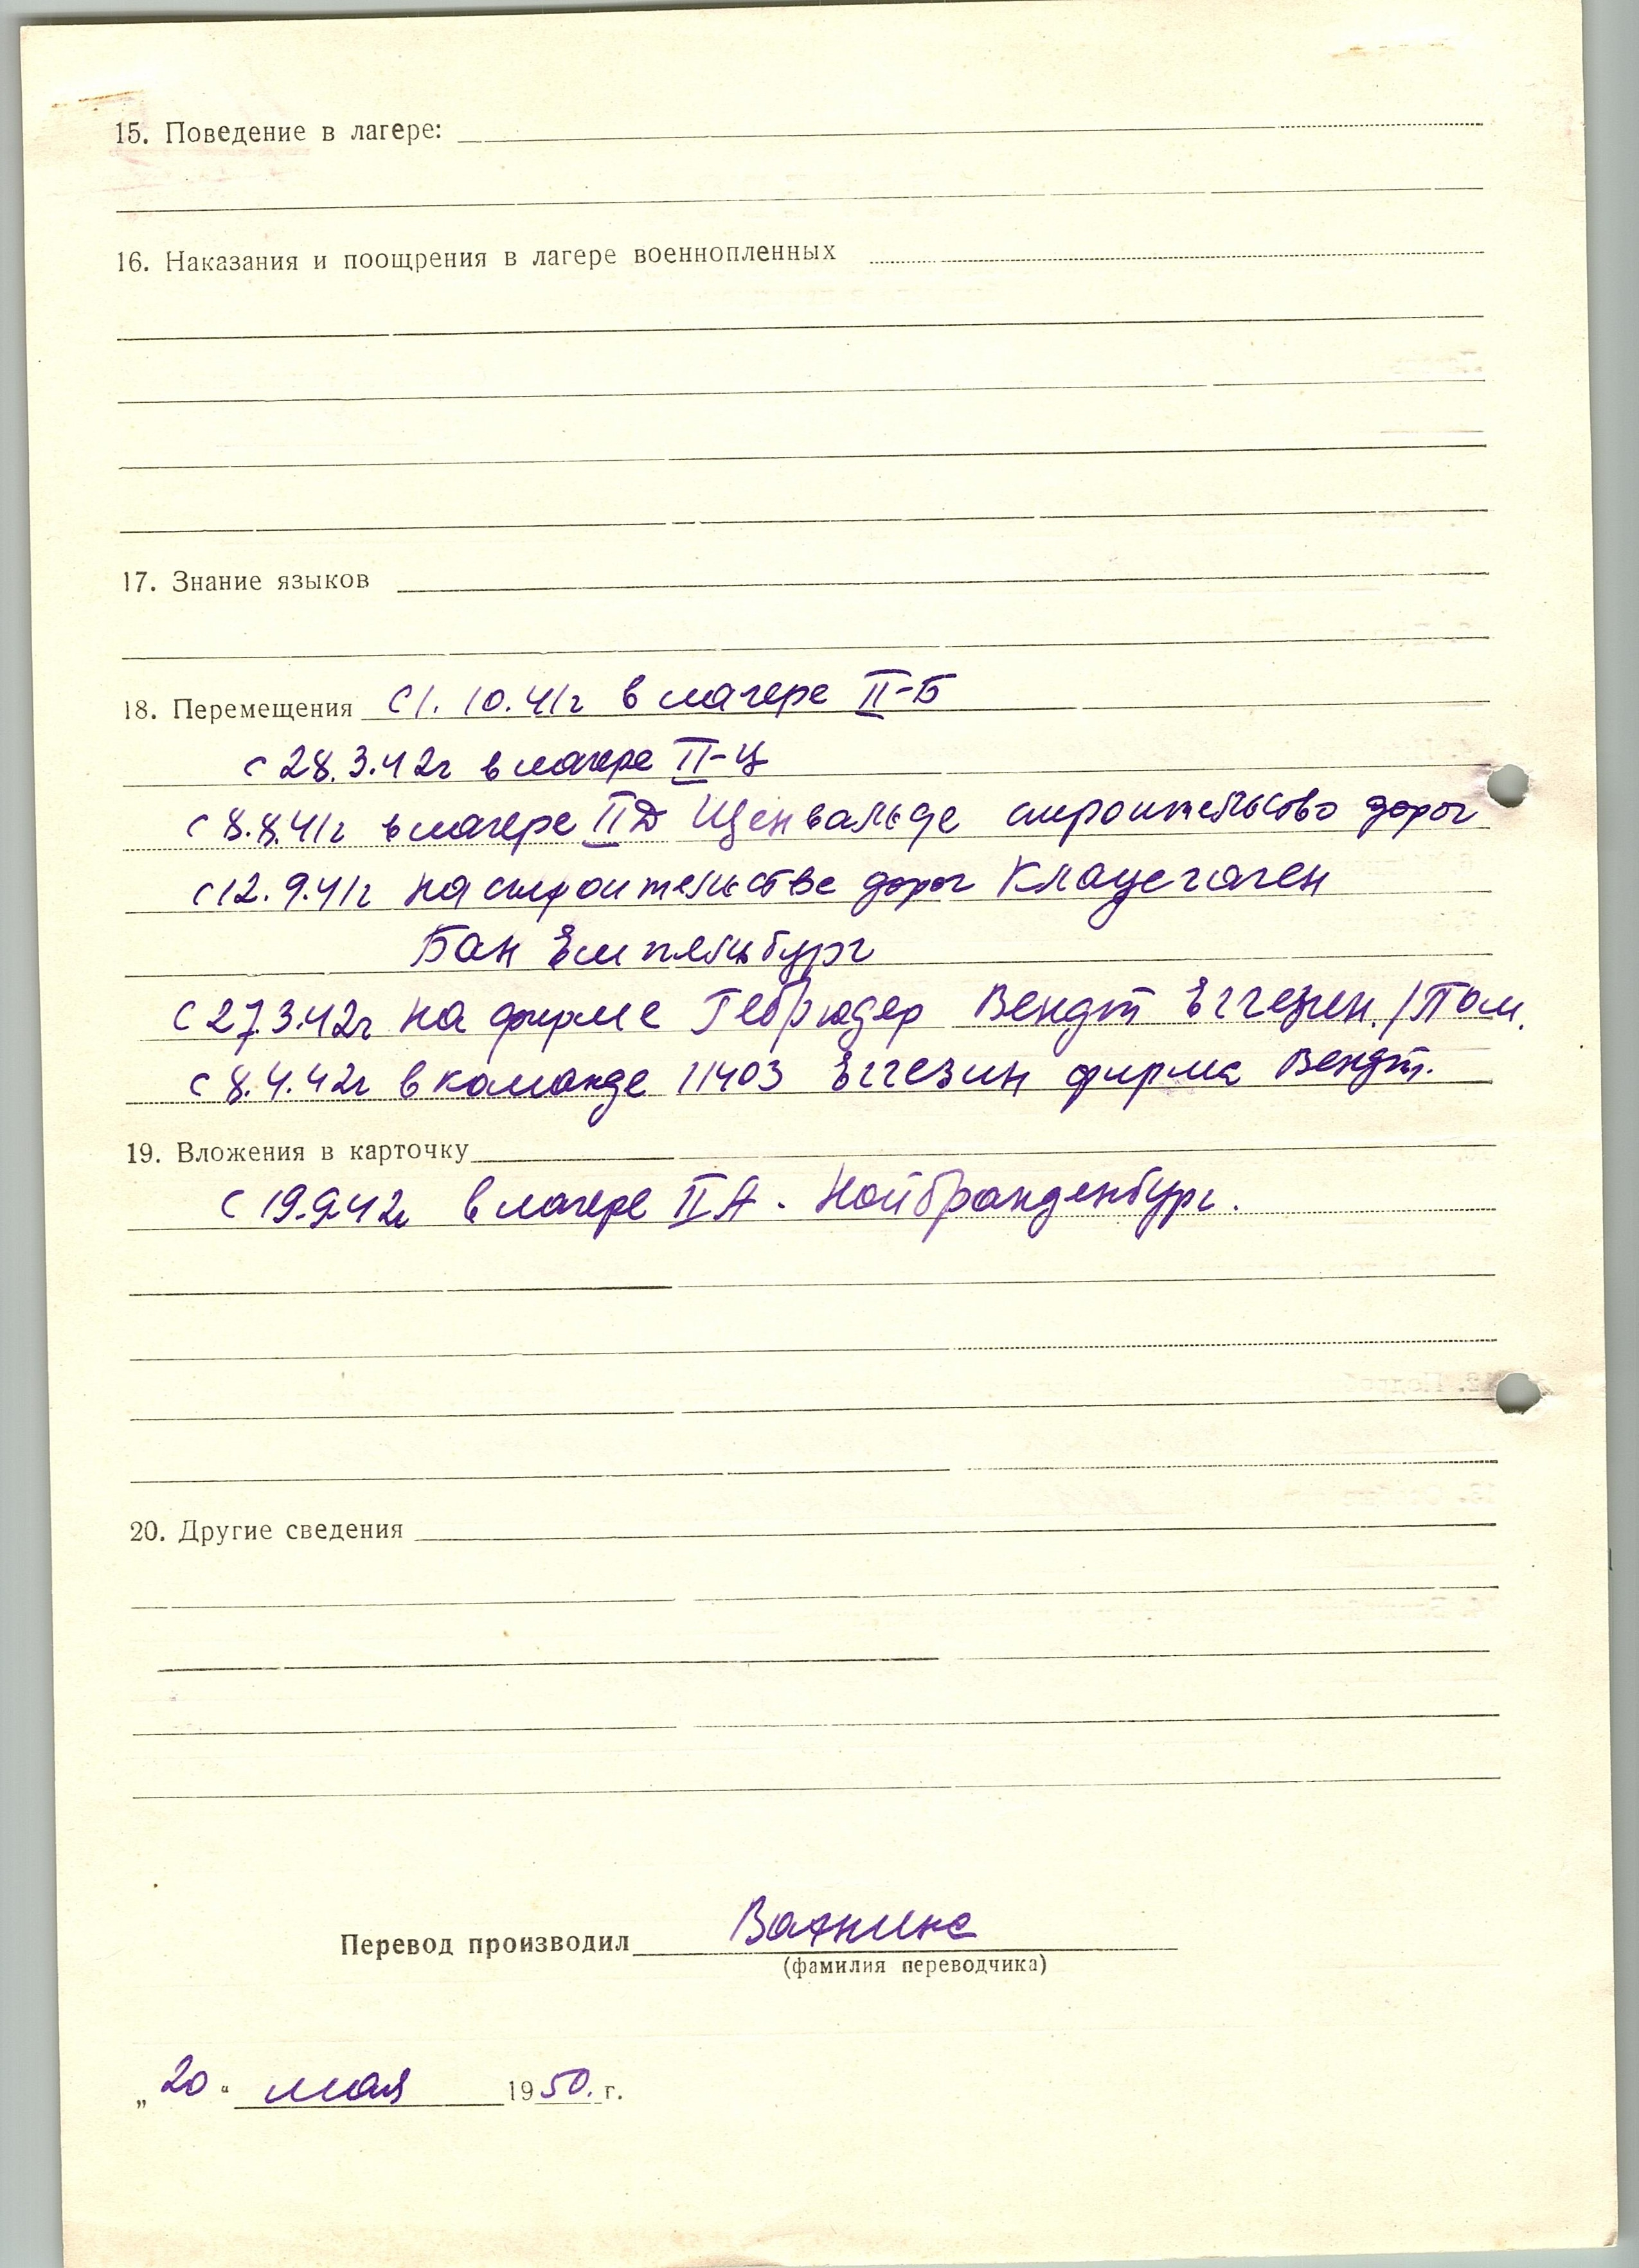 15. Поведение в лагере:
16. Наказания и поощрения в лагере военнопленных
17. Знание языков
18. Перемещения с 1.10.41г в лагере II-Б
с 28.3.42г в лагере II-Ц
с 8.8.41г в лагере IIД Щенвальде строительство дорог
с 12.9.41г на строительстве дорог Клауцегаген
Бан Емпельбург
с 27.3.42г на фирме Гебрюдер Вендт Еггезен./Пом.
с 8.4.42г в команде 11403 Еггезин фирма Вендт.
19. Вложения в карточку
с 19.9.42г в лагере IIА. Нойбранденбург.
20. Другие сведения
Перевод производил
(фамилия переводчика)
„20" мая 1950.г.